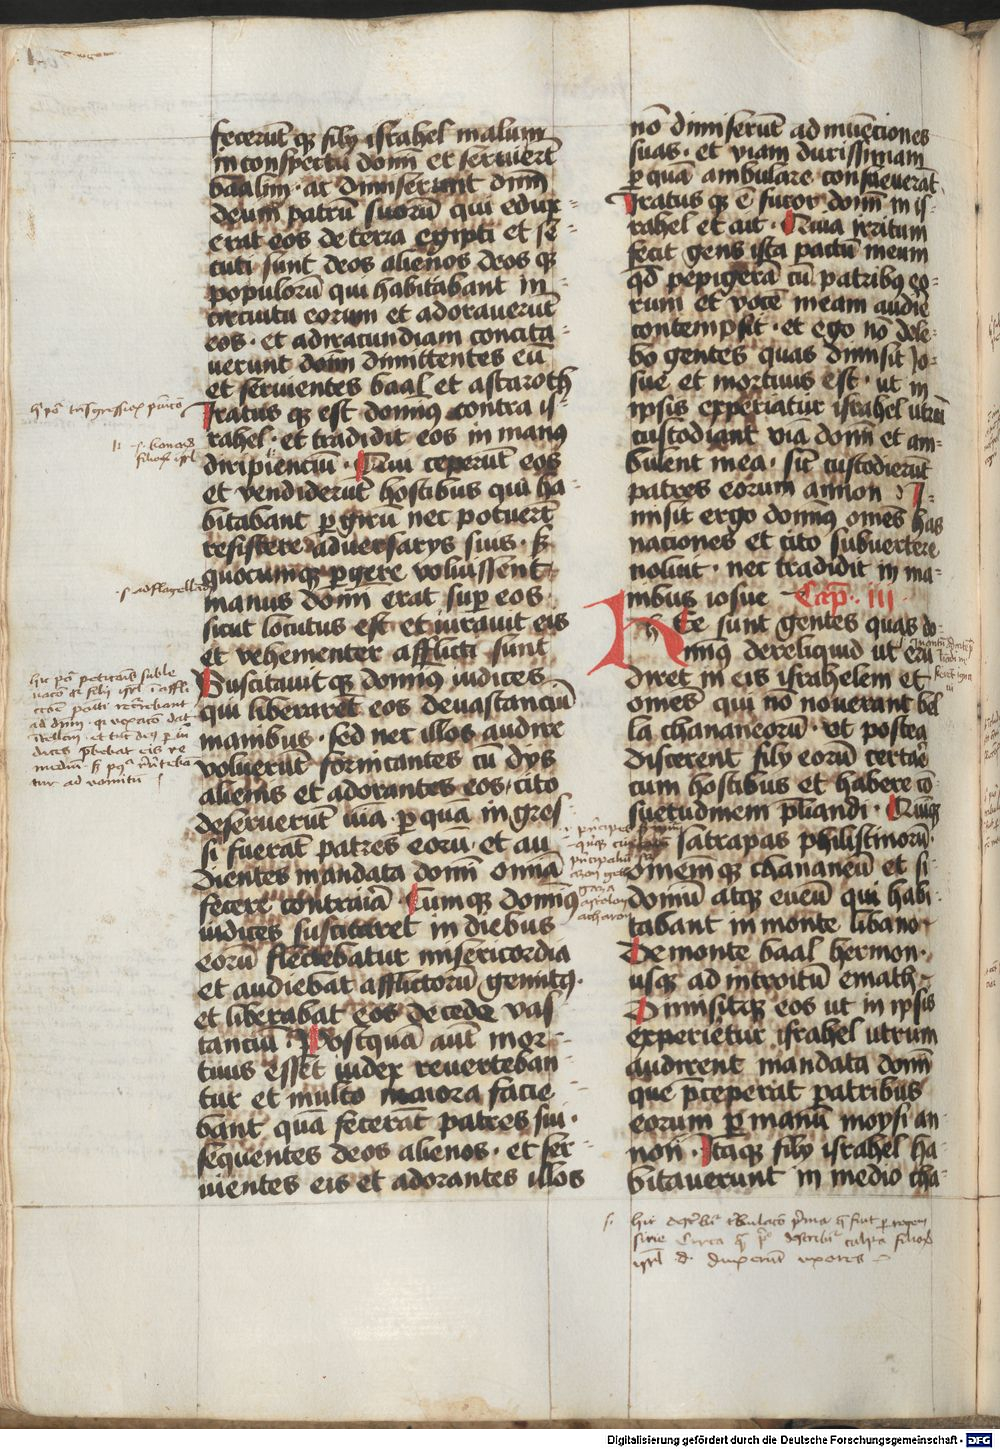 fecerūt qȝ filij israhel malum
in conspectu domī et seruierūt
baalim · ac dimiserunt dnm̄
deum patrū suorū qui edux=
erat eos de terra egipti et se=
cuti sunt deos alienos deos qȝ
populorū qui habitabant in
circuitu eorum et adorauerūt
eos · et ad iracundiam concita=
uerunt dom̄ dimittentes eū
et seruientes baal et astaroth
Iratus qȝ est domīꝰ contra is=
rahel · et tradidit eos in manꝰ
diripienciū · Qui ceperūt eos
et vendiderūt hostibus qui ha=
bitabant ꝑ girū nec potuerūt
resistere aduersarijs suis · sȝ
quocumqȝ ꝑgere voluissent
manus domī erat suꝑ eos ·
sicut locutus est et iurauit eis
et vehementer afflicti sunt
Suscitauit qȝ domīꝰ iudices
qui liberarēt eos deuastanciū
manibus · sed nec illos audire
voluerūt fornicantes cū dijs
alienis et adorantes eos · cito
deseruerūt uiā · ꝑ quā in gres=
si fuerāt patres eorū · et au=
dientes mandata domī omīa
fecere contraria Cumqȝ domīꝰ
iudices suscitaret in diebus
eorū flectebatur misericordia
et audiebat afflictorū gemitꝰ ·
et liberabat eos de cede vas=
tanciū · Postquā aūt mor=
tuus esset iudex reuerteban=
tur et multo maiora facie=
bant quā fecerāt patres sui ·
sequentes deos alienos · et ser=
uientes eis et adorantes illos
nō dimiserūt ad inuēciones
suas · et viam durissimam
ꝑ quā ambulare consueuerāt ·
Iratus qȝ ē furor domī in is=
rahel et ait · Quia irritum
fecit gens ista pactū meum
qd̄ pepigerā cū patribꝰ eo=
rum et vocē meam audire
contempsit · et ego nō dele=
bo gentes quas dimisit Jo=
sue et mortuus est · ut in
ipsis experiatur israhel utrū
custodiant viā domī et am=
bulent in ea · sic̄ custodierūt
patres eorum an non I=
misit ergo domīꝰ omēs has
naciones et cito subuertere
noluit · nec tradidit in ma=
nibus iosue Cap̄ · III
Hee sunt gentes quas do=
minꝰ dereliquid ut eru=
diret in eis israhelem et
omēs qui nō nouerant bel=
la chananeorū · vt postea
discerent filij eorū certare
cum hostibus et habere cō=
suetudinem p̄liandi · Quinqȝ
satrapas philistinorū
omemqȝ chananeū et si=
doniū atqȝ eueū qui habi=
tabant in monte libano
De monte baal hermon ·
usqȝ ad introitū emath ·
Dimisitqȝ eos ut in ipsis
experietur israhel utrum
audirent mandata domī
que p̄ceperat patribus
eorum ꝑ manū moysi an
non · Itaqȝ filij israhel ha=
bitauerunt in medio cha=
Digitalisierung gefördert durch die Deutsche Forschungsgemeinschaft - DFG